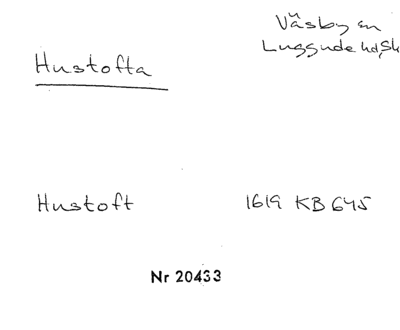 Väsby sn
Luggude hd, Sk
Hustofta
Hustoft 1619 KB 645
Nr 20433